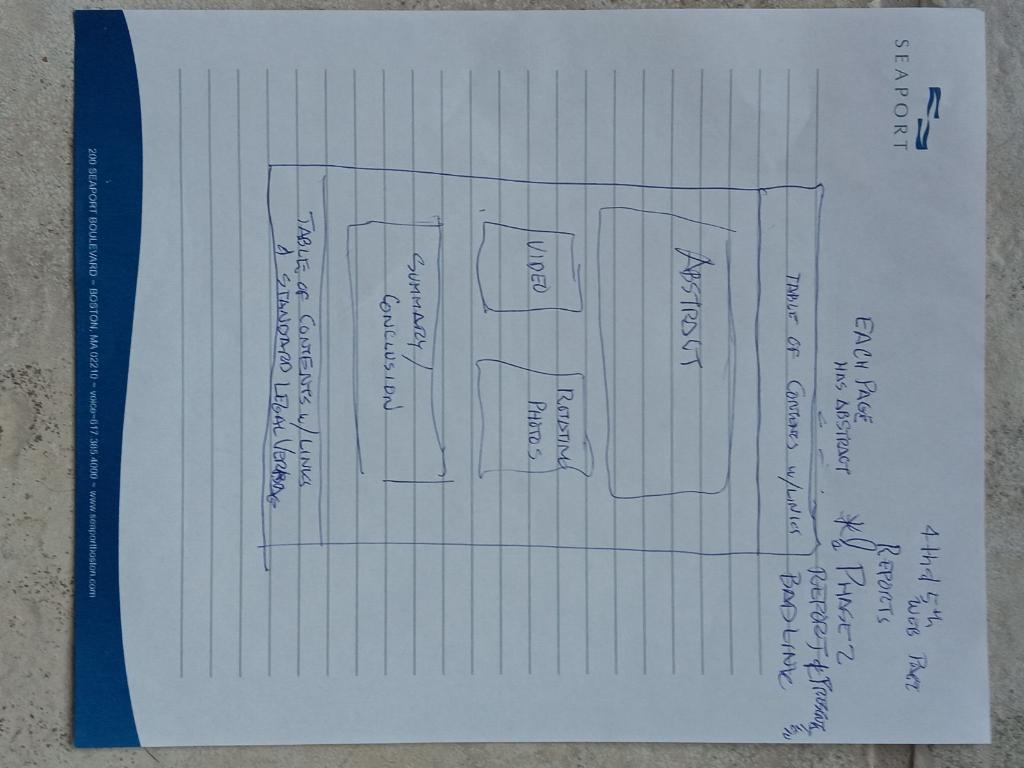 SEAPORT
4th & 5th
WEB PAGE
REPORTS
EACH PAGE
HAS ABSTRACT
PHASE 2
REPORT &
BAD LINK
TABLE OF CONTENTS W/LINKS
ABSTRACT
VIDEO
ROTATING
PHOTOS
SUMMARY/
CONCLUSION
TABLE OF CONTENTS W/ LINKS
& STANDARD LEGAL
200 SEAPORT BOULEVARD ~ BOSTON, MA 02210 ~ voice~617.385.4000 ~ www.seaportboston.com